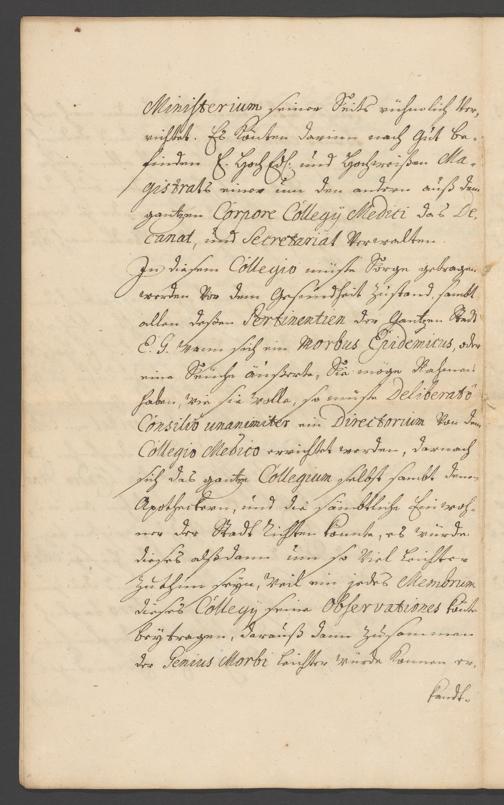 Ministerium seiner Seits rühmlich Ver-
richtet. Es könten darinn nach Gut be-
finden E. HochEdl. und Hochweißen Ma-
gistrats einer um den andern auß dem
gantzen Corpore Collegÿ Medici das De-
canat, und Secretariat Verwalten.
In diesem Collegio müste Sorge getragen
werden Vor dem Gesundheit Zustand sambt
allen deßen Pertinentien der Gantzen Stadt
E. G. wann sich ein Morbus Epidemicus, oder
eine Seuche äußerte, Sie möge Nahmen
haben, wie sie wolle, so müste Deliberatô
Consiliô unanimiter ein Directorium Von dem
Collegio Medico errichtet werden, darnach
sich das gantze Collegium selbst sambt denen
Apotheckern, und die sämbtliche Einwoh-
ner der Stadt richten könnte, es würde
dieses alßdann um so Viel leichter
zu thun seyn, Weil ein jedes Membrum
dieses Collegÿ seine Observationes könte
beÿtragen, darauß dann zusammen
der Genius Morbi leichter würde können er-
kandt-